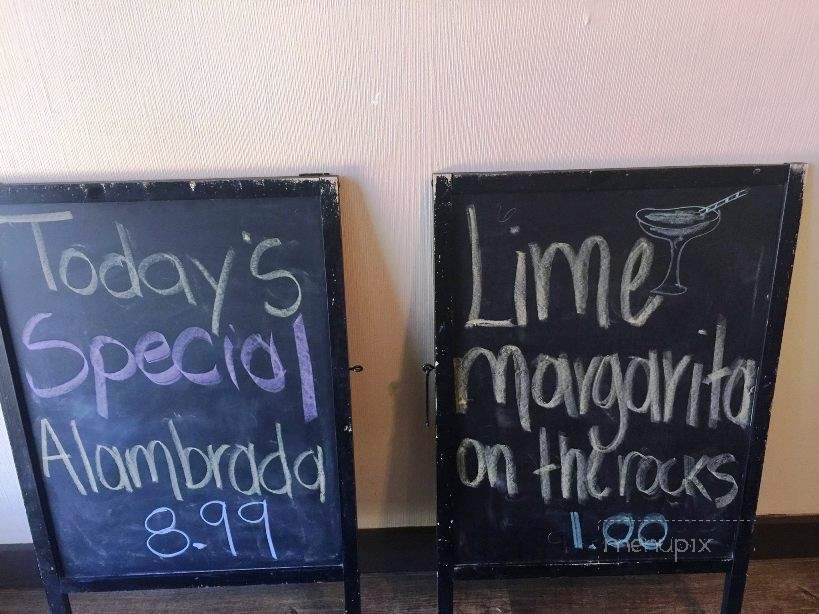 Today's
Special
Alambrada
8.99
Lime
margarita
on the rocks
1.00
menupix